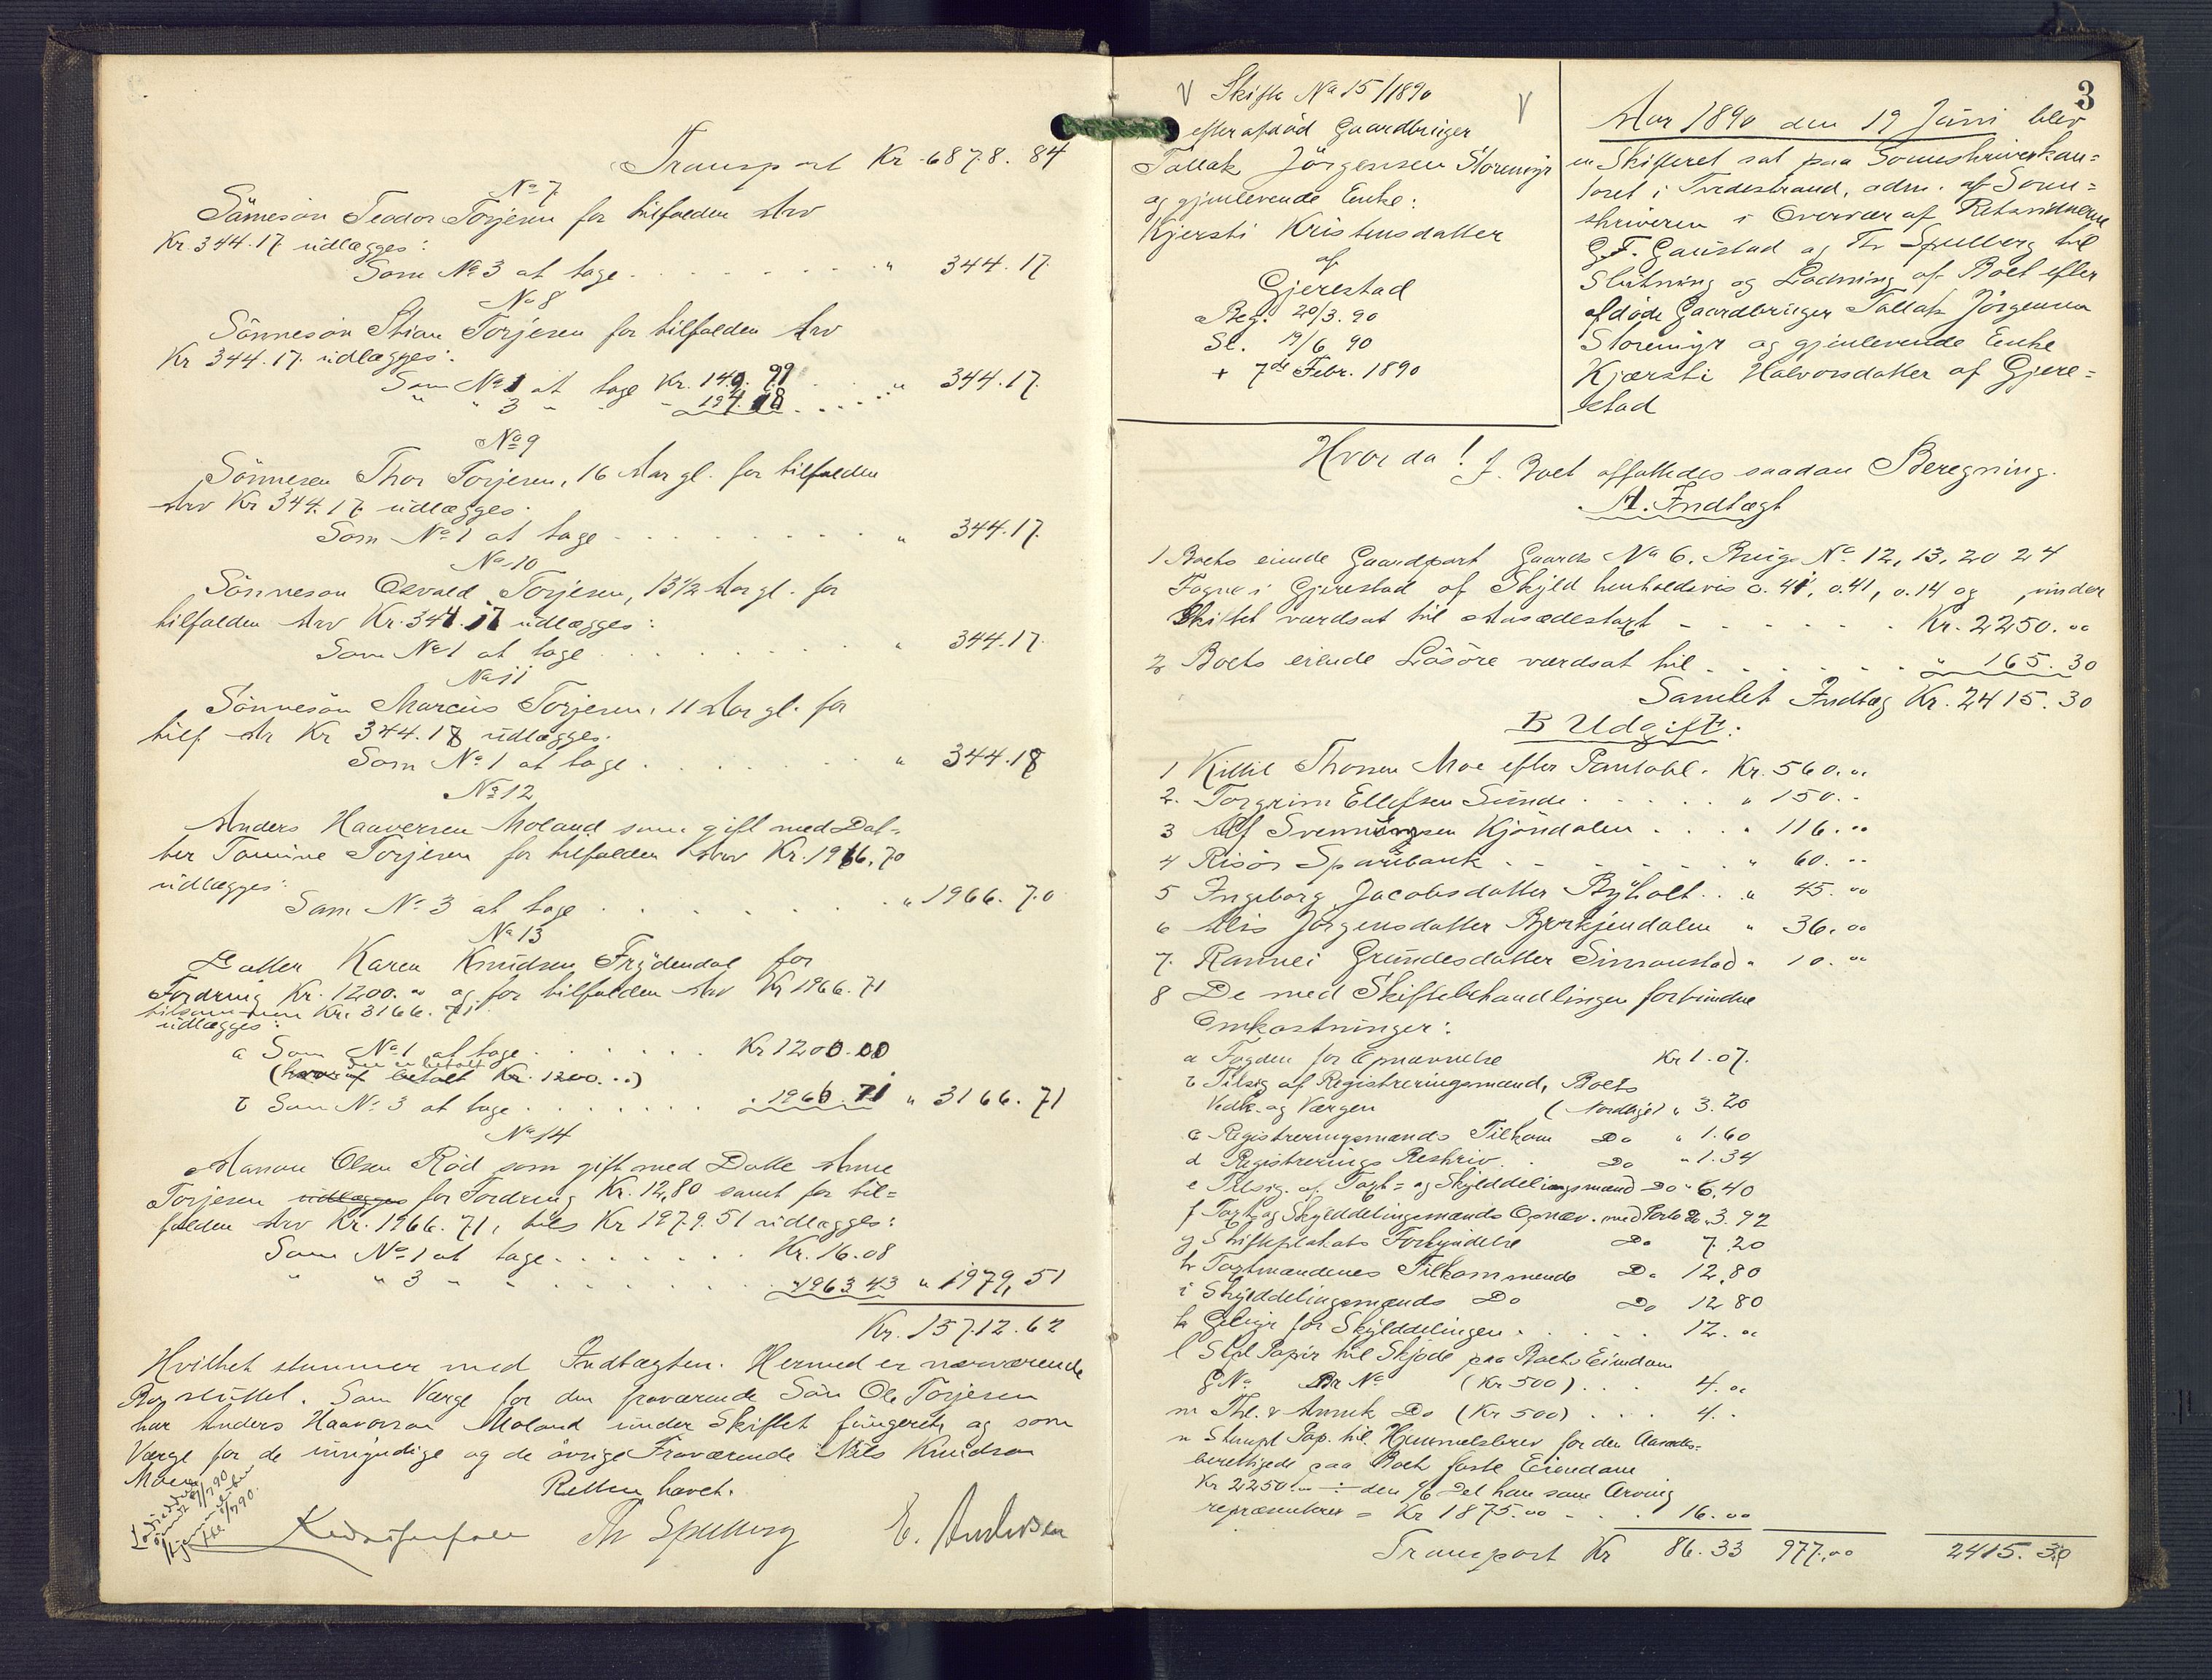 Transport Kr 6878.84
No 7
Sønnesøn Teodor Torjesen for tilfalden Arv
Kr 344.17 udlægges:
Som No 3 at tage . . . " 344.17.
No 8
Sønnesøn Stian Torjesen for tilfalden Arv
Kr 344.17. udlægges:
Som No 1 at tage Kr. 149.99 . . " 344.17.
" " 3 " - 194.18 . . . .
No 9
Sønnesøn Thor Torjesen, 16 Aar gl. for tilfalden
Arv Kr 344.17 udlægges:
Som No 1 at tage . . . " 344.17.
No 10
Sønneson Osvald Torjesen, 13½ Aar gl. for
tilfalden Arv Kr. 344.17 udlægges:
Som No 1 at tage . . . " 344.17
No 11
Sønnesøn Marcus Torjesen, 11 Aar gl. for
tilf Ar Kr 344.18 udlægges.
Som No 1 at tage . . . " 344.18
No 12
Anders Haaversen Moland som gift med Dat=
ter Tomine Torjesen for tilfalden Arv Kr. 1966.70
udlægges:
Som No 3 at tage . . . " 1966.70
No 13
Datter Karen Knudsen Frydendal for
Fordring Kr. 1200.00 og for tilfalden Arv Kr 1966.71
tilsammen Kr. 3166.71
udlægges:
a Som No 1 at tage . . . Kr 1200.00
(hvoraf betalt Kr. 1200...)
b Som No 3 at tage . . . " 1966.71 " 3166.71
No 14
Aanon Olsen Röd som gift med Datte Anne
Torjesen udlægges for Fordring Kr. 12,80 samt for til=
falden Arv Kr. 1966.71, tils Kr 1979.51 udlægges:
Som No 1 at tage . . . Kr. 16.08
" " 3 " - . . . " 1963.43 " 1979,51
Kr. 15712.62
Hvilket stemmer med Indtægten. Hermed er nærværende
Bo sluttet. Som Værge for den fraværende Søn Ole Torjesen
har Anders Haavorsen Moland under Skiftet fungeret, og som
Værge for de umyndige og de øvrige Fraværende Nils Knudsen
Moen
Retten hævet.
Th Spelberg E. Andersen
3
Skifte No 15/1890
efter afdød Gaardbruger
Tallak Jörgensen Storemyr
og gjenlevende Enke:
Kjersti Kristensdatter
af
Gjerestad
Beg. 20/3. 90
Sl. 19/6 90
+ 7de Febr. 1890
Aar 1890 den 19 Juni blev
en Skifteret sat paa Sorenskriverkon=
toret i Tvedestrand, adm. af Soren=
skriveren i Overvær af Retsvidnerne
G.F. Gaustad og Th Spelberg til
Slutning og Lodning af Boet efter
afdøde Gaardbruger Tallak Jörgensen
Storemyr og gjenlevende Enke
Kjærsti Halvorsdatter af Gjere=
stad
Hvorda!
I Boet affattedes saadan Beregning.
A. Indtægt
1 Boets eiende Gaardpart Gaards No 6. Brugs No 12, 13, 20 24
i Gjerestad af Skyld henholdsvis 0.41, 0.41, 0.14 og , under
Skiftet værdsat til Aasædestaxt - - - Kr. 2250.00
2 Boets eiende Løsøre værdsat til . . . " 165.30
Samlet Indtæg Kr. 2415.30
B Udgift:
1 Kittil Thorsen Moe efter Pantobl. Kr. 560.00
2. Torgrim Ellefsen Sunde . . . " 150..
3 Alf Svenningsen Kjøndalen . . . " 116.00
4 Risør Sparebank . . . " 60...
5 Ingeborg Jacobsdatter Byholt . . " 45.00
6 Alis Jörgensdatter Bjørkjendalen " 36.00
7. Rannei Grundesdatter Simonstad " 10.00
8 De med Skiftebehandlingen forbundne
Omkostninger:
a Fogden for Opnævnelse Kr 1.07.
b Tilsig af Registreringsmænd, Boets
Vedk. og Værgen " 3.20
c Registreringsmænds Tilkom Do " 1.60
d Registrerings Reskriv . . Do " 1.34
e Tilsig. af Taxt= og Skylddelingsmænd Do " 6,40
f Taxt og Skylddelingsmænds Opnæv. med Porto Do " 3.92
g Skifteplakats Forkyndelse Do 7.20
h Taxtmændenes Tilkommende Do 12,80
i Skylddelingsmænds Do Do 12,80
k Gebyr for Skylddelingen . . . 12.00
l Stpl Papir til Skjøde paa Boets Eiendom
G No Br No (Kr 500) . . . 4.00
m Thl. & Anmk Do (Kr 500) . . . 4..
n Stemplt Pap. til Hjemmelsbrev for den Aasædes=
berettigede paa Boets faste Eiendom
Kr 2250.00 ÷ den 1/6 Del han som Arving
repræsenterer = Kr 1875.00 - . . 16.00
Transport Kr 86.33 977.00 2415.30